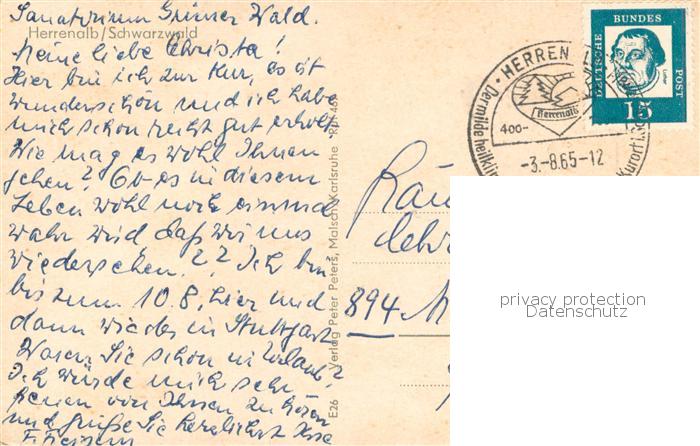 Sanatorium Grüner Wald.
Herrenalb/Schwarzwald
Meine liebe Christa!
Hier bin ich zur Kur, es ist
wunderschön und ich habe
mich schon recht gut erholt.
Wie mag es wohl Ihnen
gehen? Ob es in diesem
Leben wohl noch einmal
wahr wird, daß wir uns
wiedersehen. ?? Ich bin
bis zum 10.8. hier und
dann wieder in Stuttgart
Waren Sie schon in Urlaub?
Ich würde mich sehr
freuen von Ihnen zu hören
und grüße Sie herzlichst Ihre
F.
E26 Verlag Peter Peters, Malsch-Karlsruhe
HERREN
Der milde heilkli
Kurort i. Sc
Herrenalb
400-
-3.-8.65-12
DEUTSCHE
BUNDES
POST
Luther
15
894
privacy protection
Datenschutz